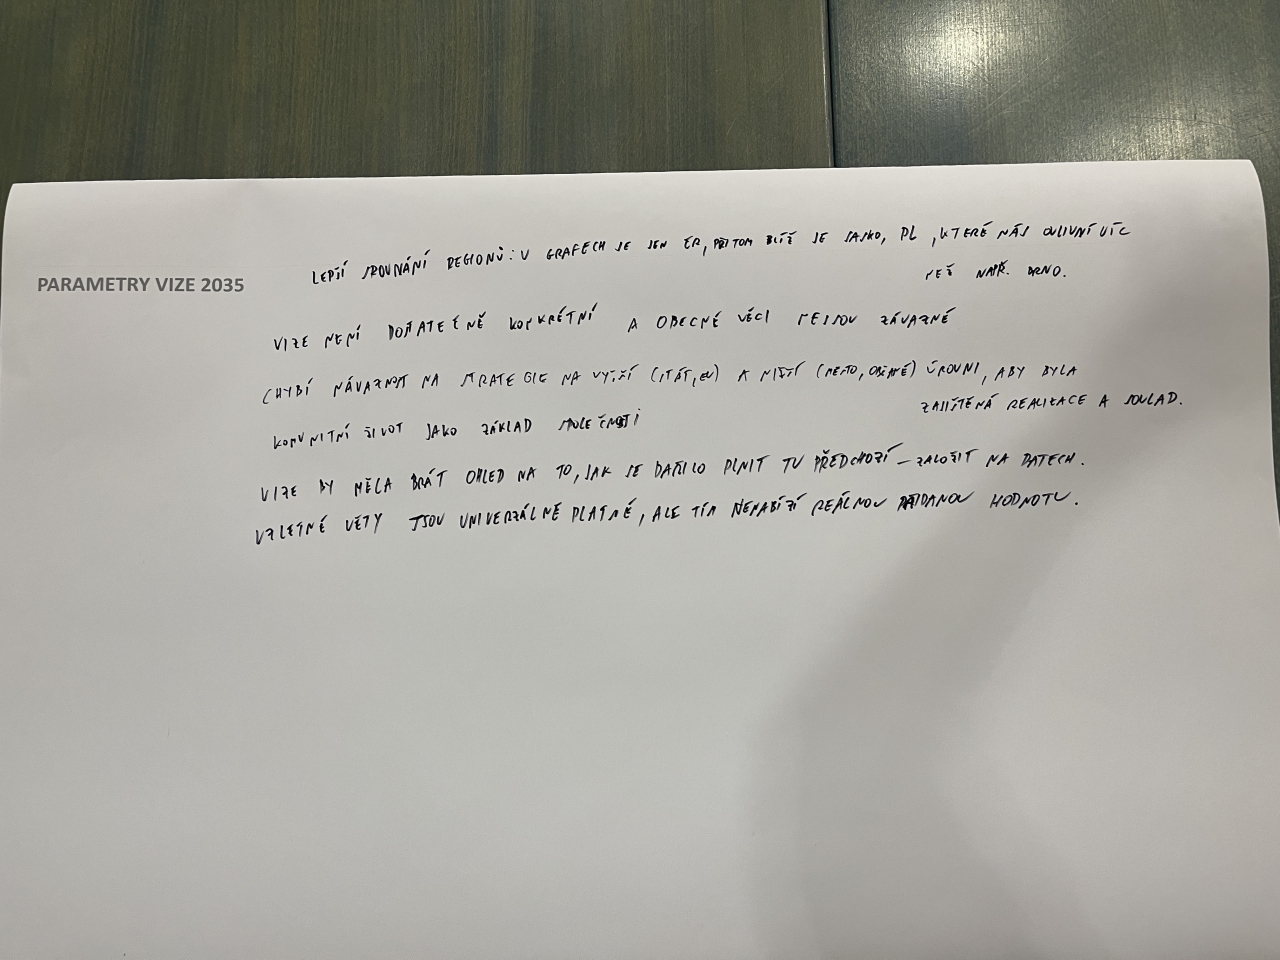 LEPŠÍ SROVNÁNÍ REGIONŮ: V GRAFECH JE JEN ČR, PŘITOM BLÍŽ JE SASKO, PL, KTERÉ NÁS OVLIVNÍ VÍC
NEŽ NAPŘ. BRNO.
PARAMETRY VIZE 2035
VIZE NENÍ DOSTATEČNĚ KONKRÉTNÍ A OBECNÉ VĚCI NEJSOU ZÁVAZNÉ
CHYBÍ NÁVAZNOST NA STRATEGIE NA VYŠŠÍ (STÁT, EU) A NIŽŠÍ (MĚSTO, OBČANÉ) ÚROVNI, ABY BYLA
ZAJIŠTĚNÁ REALIZACE A SOULAD.
KOMUNITNÍ ŽIVOT JAKO ZÁKLAD SPOLEČNOSTI
VIZE BY MĚLA BRÁT OHLED NA TO, JAK SE DAŘILO PLNIT TU PŘEDCHOZÍ – ZALOŽIT NA DATECH.
VZLETNÉ VĚTY JSOU UNIVERZÁLNĚ PLATNÉ, ALE TÍM NENABÍZÍ REÁLNOU PŘIDANOU HODNOTU.